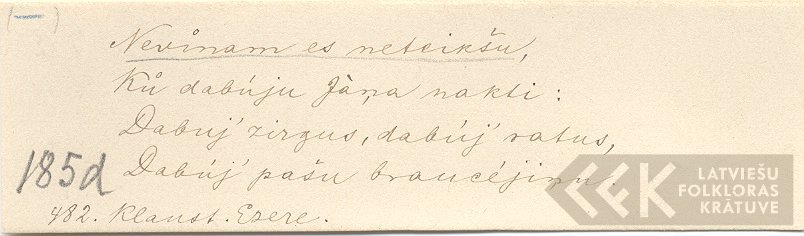 (—)
Nevůnam es neteikšu,
Ků dabúju Jàņa nakti:
Dabúj' zirgus, dabúj' ratus,
Dabúj' pašu braucéjiņu.
185d
482. Klaust. Ezere.
LATVIEŠU
FOLKLORAS
KRĀTUVE